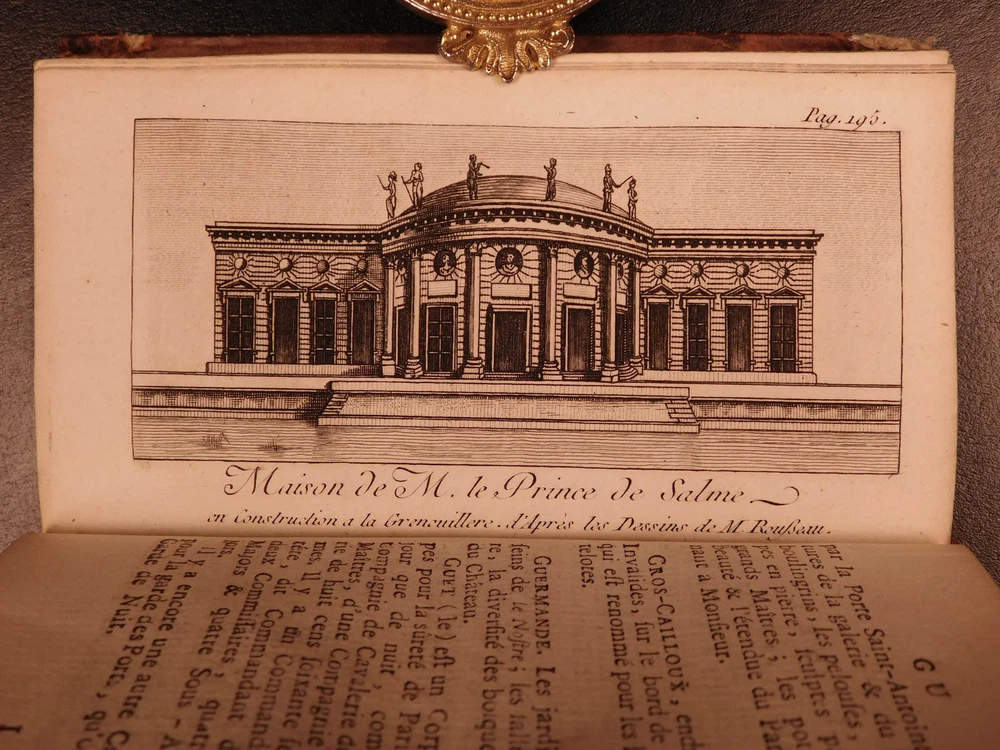 Pag. 195.
Maison de M. le Prince de Salme
en Construction a la Grenouillere. d'Après les Dessins de M. Roußeau.
G U
par la Porte Saint-Antoin
tures de la galerie & du
boulingrins, les pelouses,
ges en pierre, sculptés p
grands Maîtres; les po
beauté & l'étendue du Pa
nanc à Monsieur.
GROS-CAILLOUX, end
Invalides, sur le bord de
qui est renommé pour les
telotes.
GUERMANDE. Les jard
seins de le Nostre; les sal
re, la diversité des bosque
du Château.
GUET (le) est un Cor
pes pour la sûreté de Pari
jour que de nuit, com
Compagnie de Cavalerie d
Maîtres, d'une Compagnie d
rie de huit cens soixante
mes. Il y a un Comma
dit Commandant
deux Commissaires, quat
Majors & quatre Sous-A
jors.
Il y a encore une autre Co
pour la garde des Ports, qu
Garde de Nuit.